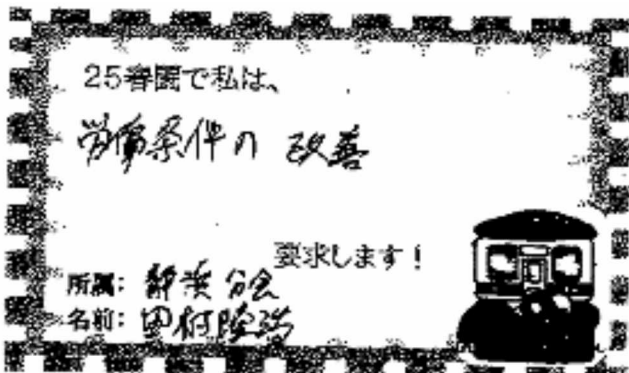 25春闘で私は、
労働条件の 改善
要求します！
所属: 静浜分会
名前: 田村